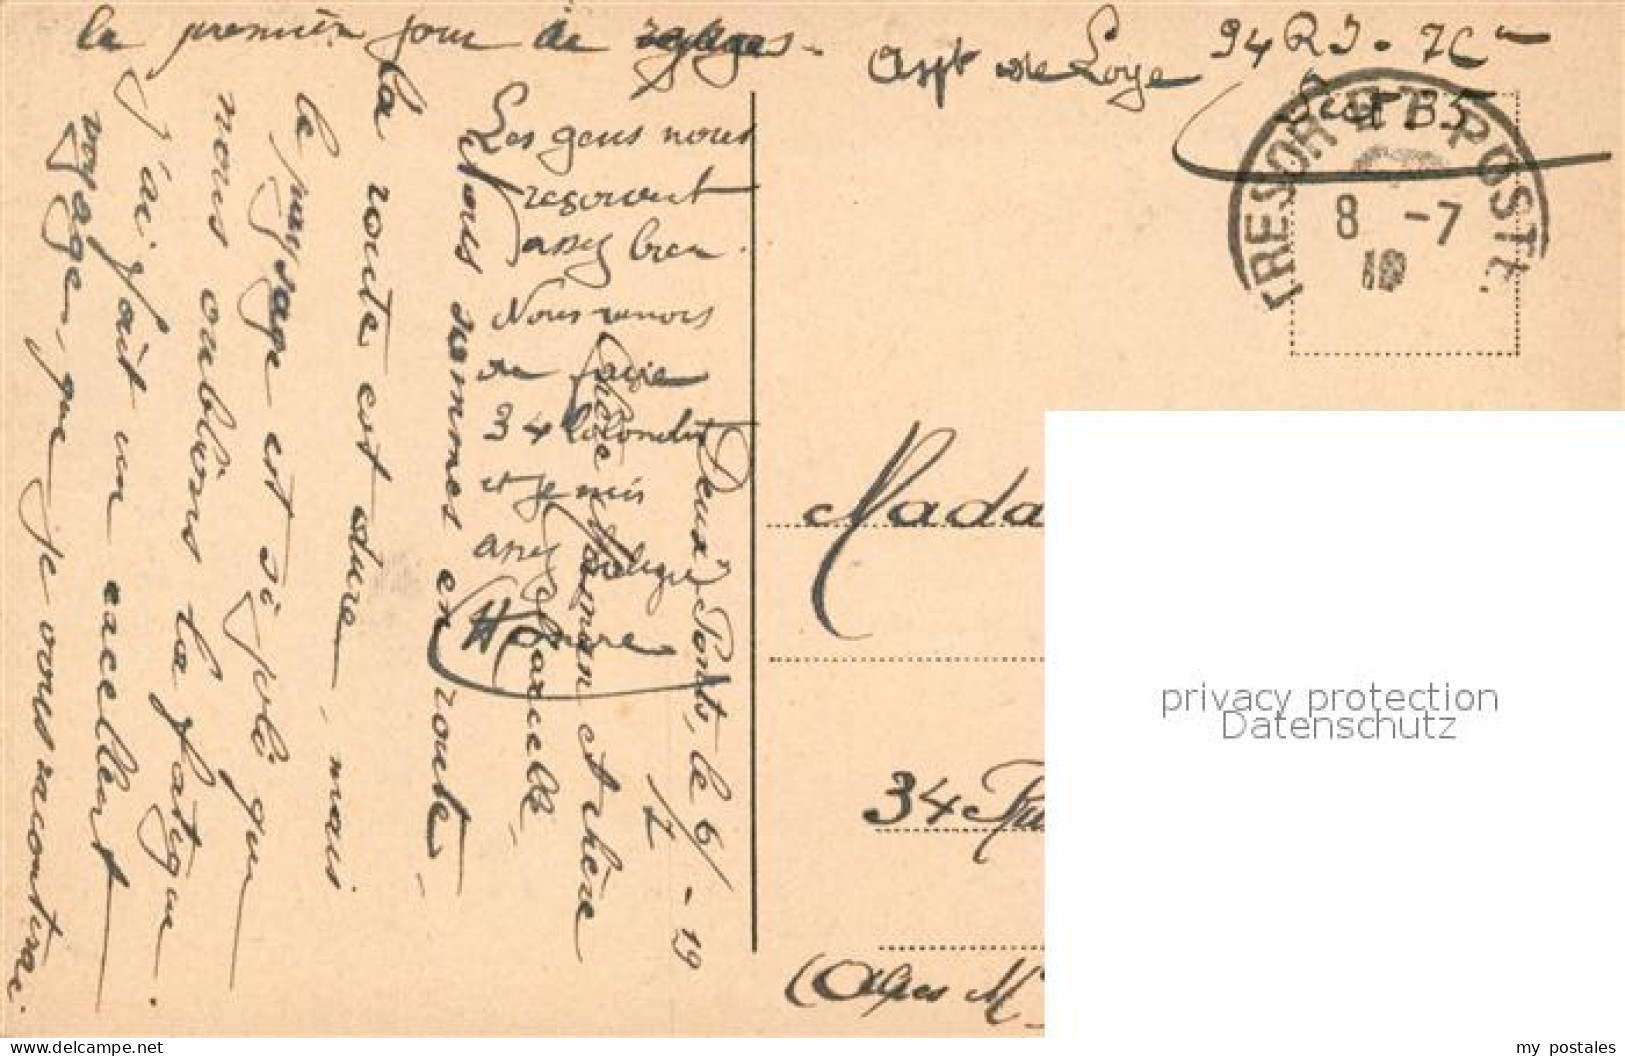 Deux Ponts, le 6/7-19
Chère Maman et chère
Marcelle,
Nous sommes en route,
la route est dure, mais
le paysage est si joli que
nous oublions la fatigue.
J'ai fait un excellent
voyage, que je vous raconterai
le premier jour de
Les gens nous
reçoivent
assez bien.
Nous venons
de faire
34
et je suis
assez
Honoré
Aspt de Loye 94 RI - 7 Cie
Sect B5
TRESOR ET POSTE.
8 -7
19
Mada
34
(Alpes M
privacy protection
Datenschutz
www.delcampe.net
my_postales